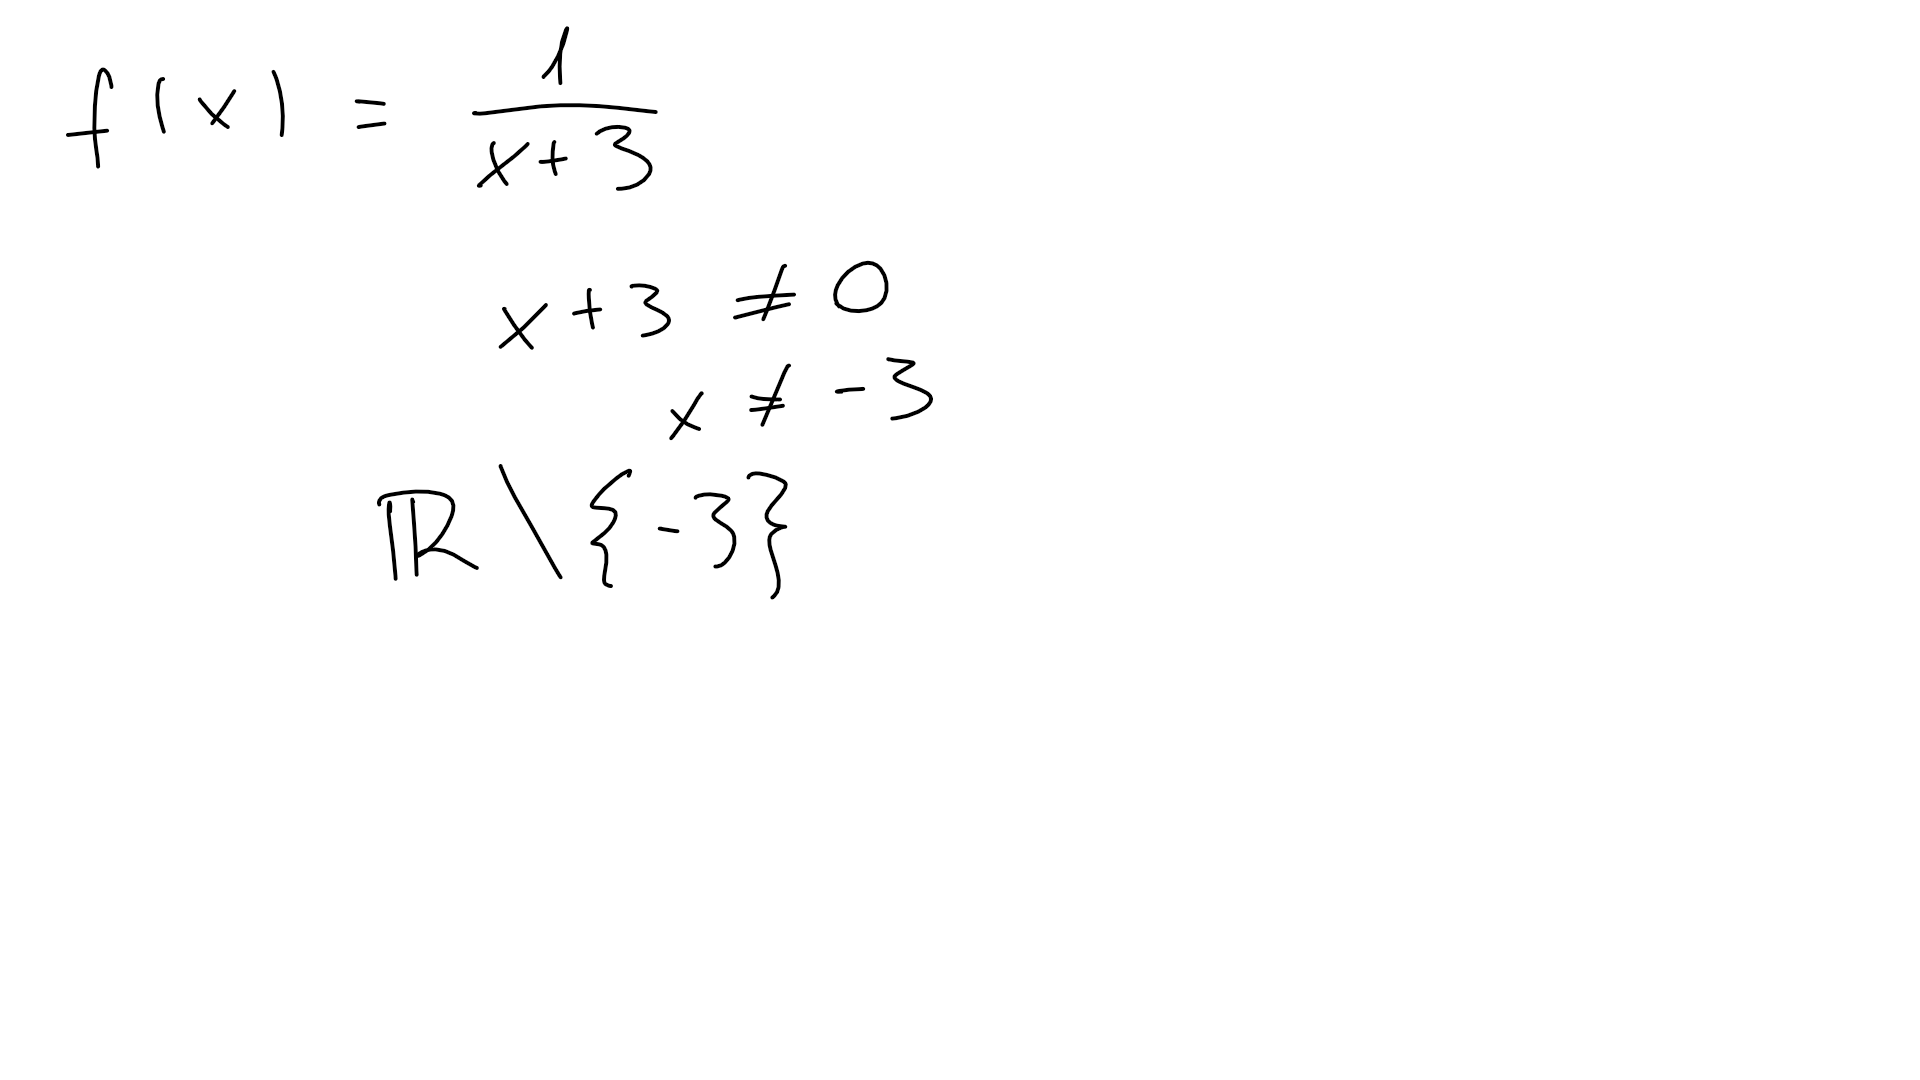 f(x) = \frac{1}{x+3}
x+3 ≠ 0
x ≠ -3
ℝ \ {-3}